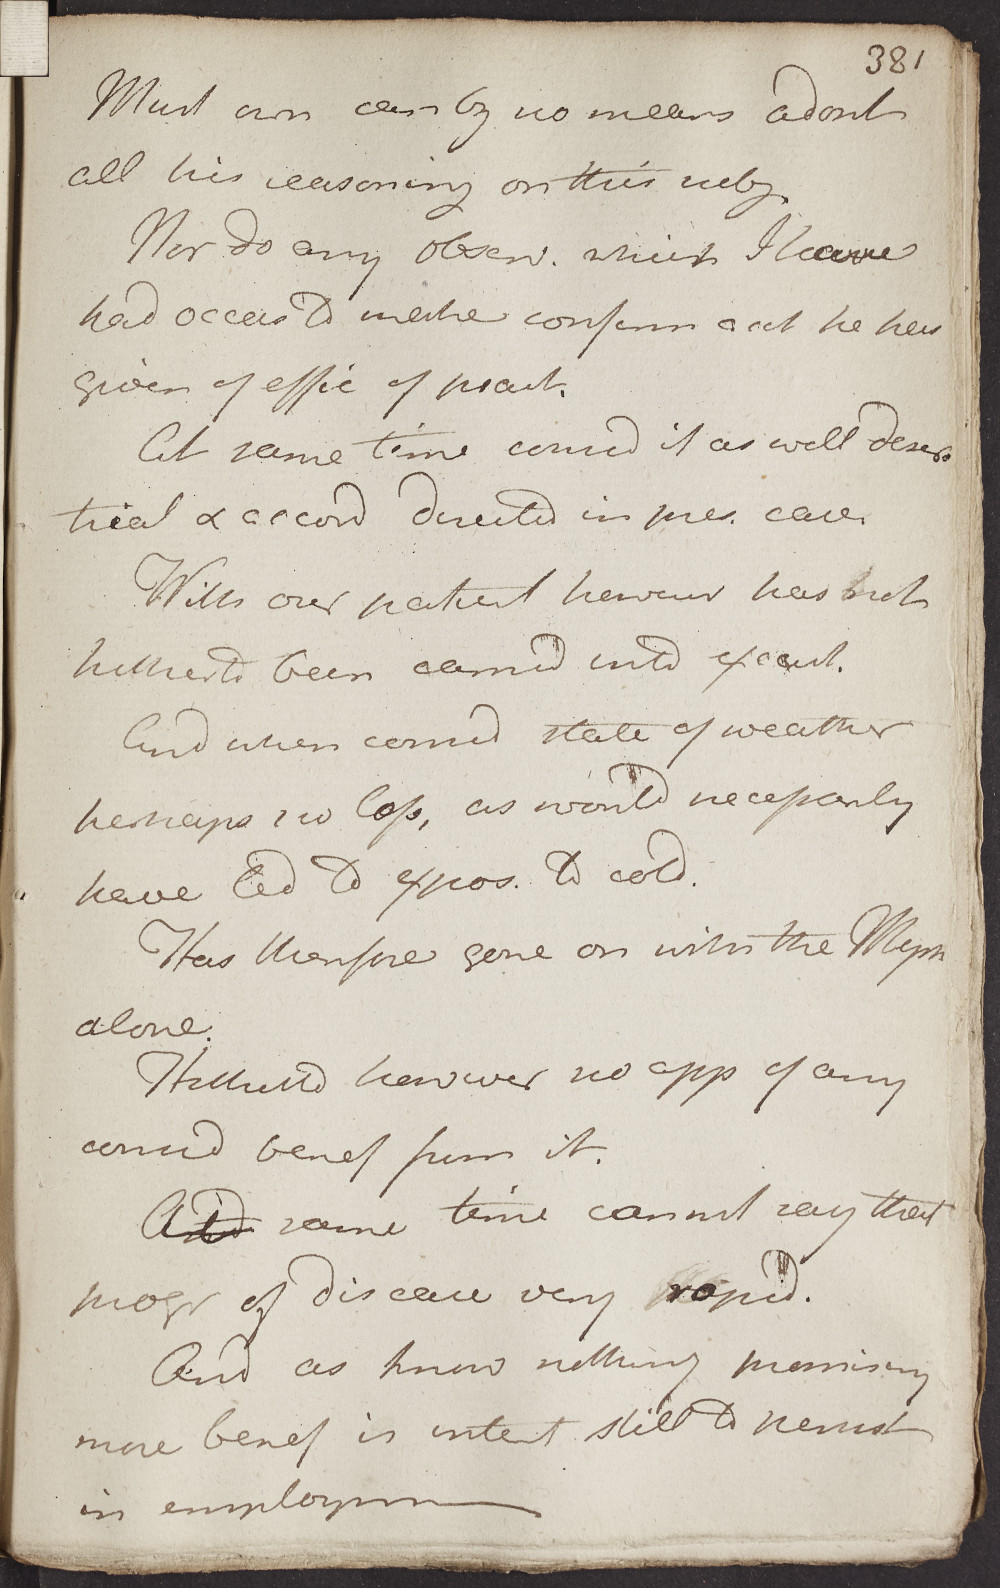 381
Must own can by no means adopt
all his reasoning on this subj.
Nor do any observ. which I have
had occas to make confirm acct he has
given of effic of pract.
At same time consid it as well deserv
trial & accord directed in pres. case.
With our patient however has not
hitherto been carried into execut.
And when consid state of weather
perhaps no loss, as would necessarily
have led to expos. to cold.
Has therefore gone on with the
alone.
Hitherto however no app of any
consid benef from it.
At same time cannot say that
progr of disease very rapid.
And as know nothing promising
more benef is intent still to persist
in employm